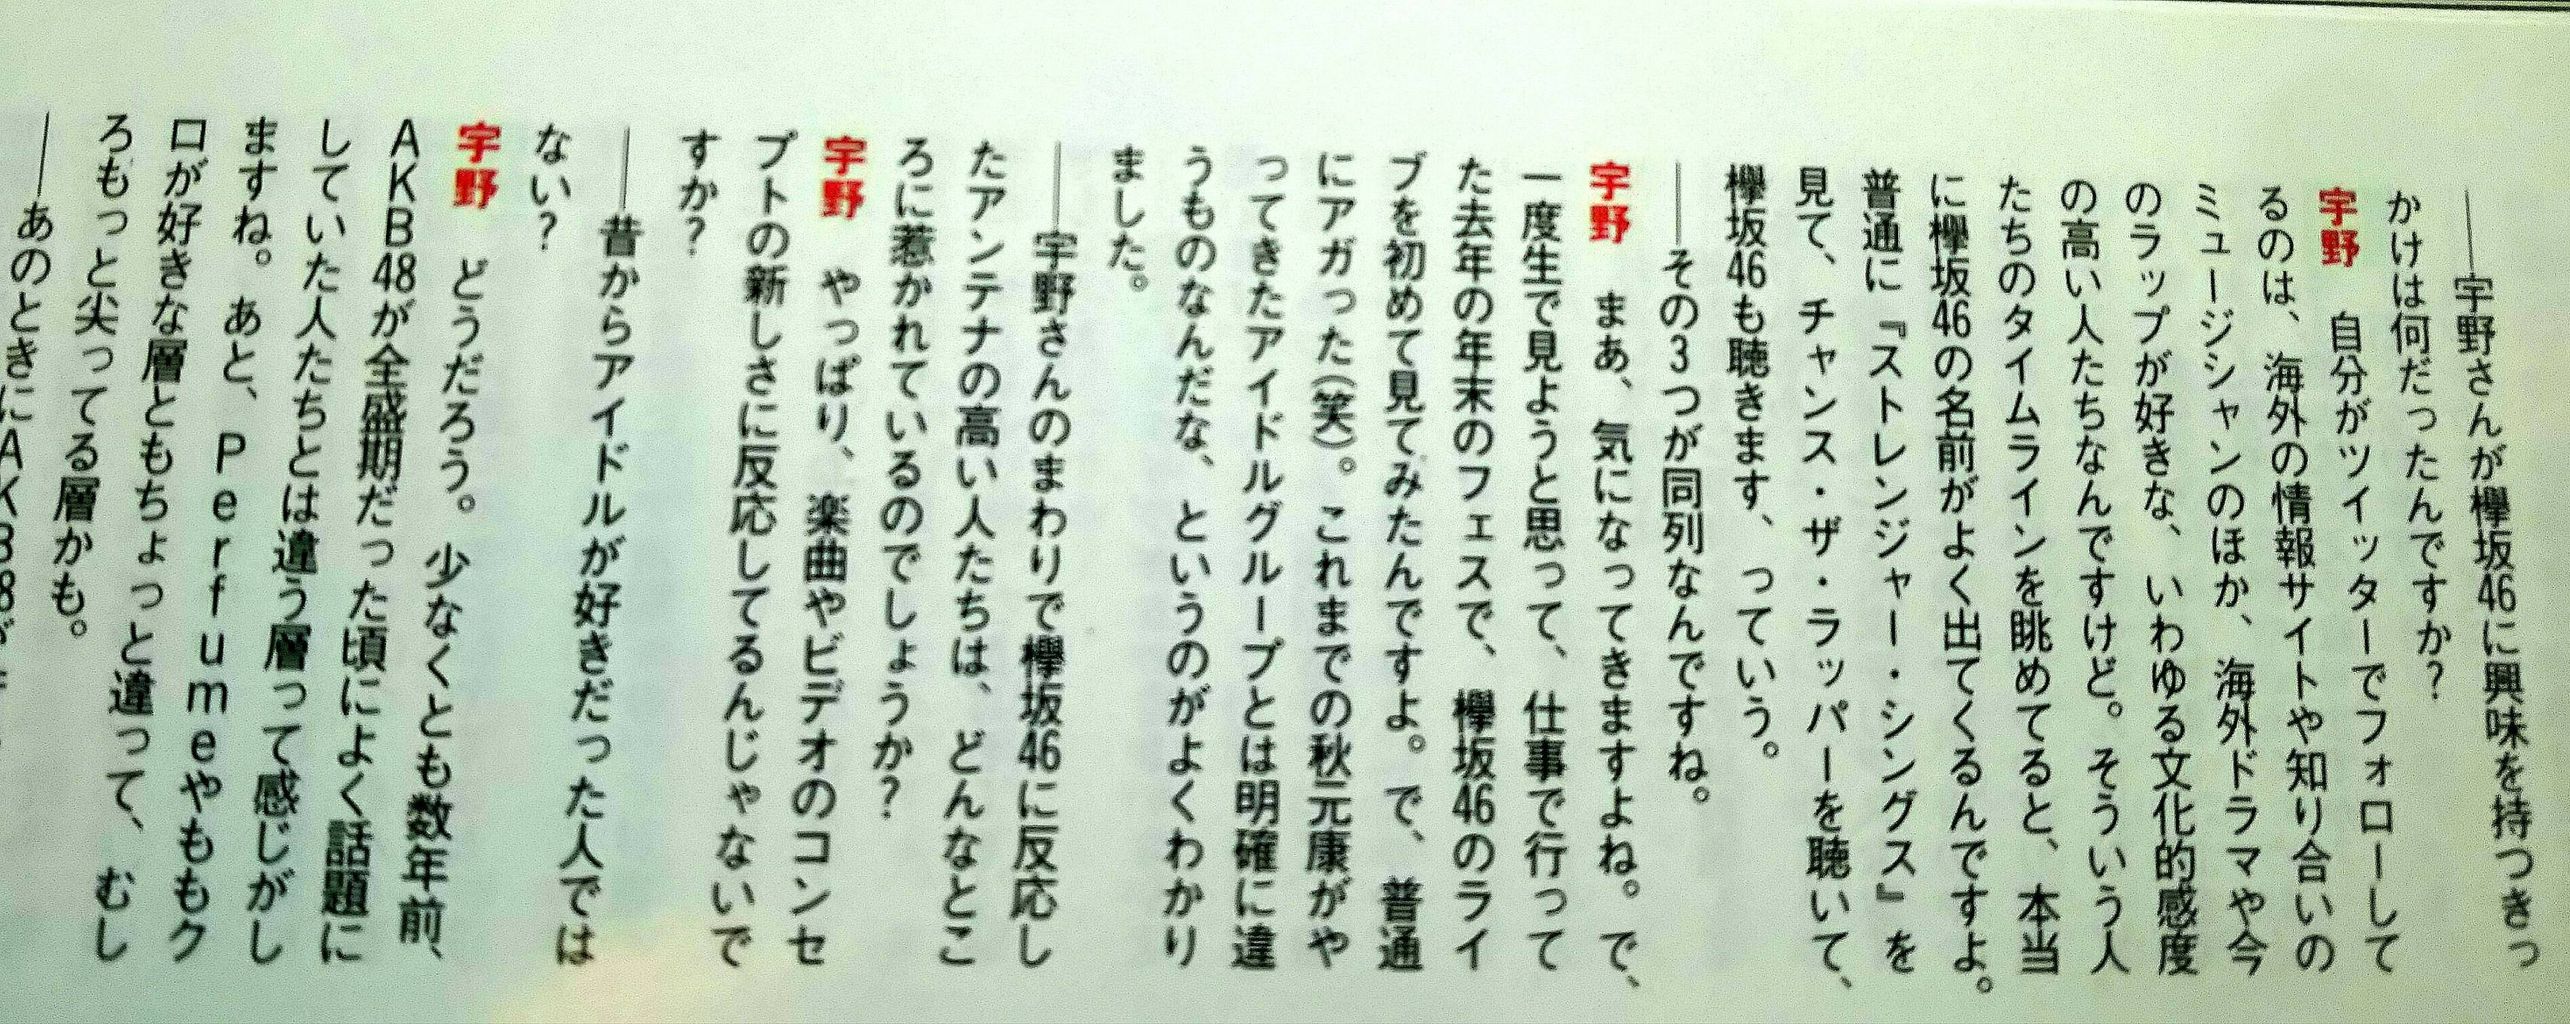 ――宇野さんが欅坂46に興味を持つきっ
かけは何だったんですか？
宇野　自分がツイッターでフォローして
るのは、海外の情報サイトや知り合いの
ミュージシャンのほか、海外ドラマや今
のラップが好きな、いわゆる文化的感度
の高い人たちなんですけど。そういう人
たちのタイムラインを眺めてると、本当
に欅坂46の名前がよく出てくるんですよ。
普通に『ストレンジャー・シングス』を
見て、チャンス・ザ・ラッパーを聴いて、
欅坂46も聴きます、っていう。
――その3つが同列なんですね。
宇野　まあ、気になってきますよね。で、
一度生で見ようと思って、仕事で行って
た去年の年末のフェスで、欅坂46のライ
ブを初めて見てみたんですよ。で、普通
にアガった（笑）。これまでの秋元康がや
ってきたアイドルグループとは明確に違
うものなんだな、というのがよくわかり
ました。
――宇野さんのまわりで欅坂46に反応し
たアンテナの高い人たちは、どんなとこ
ろに惹かれているのでしょうか？
宇野　やっぱり、楽曲やビデオのコンセ
プトの新しさに反応してるんじゃないで
すか？
――昔からアイドルが好きだった人では
ない？
宇野　どうだろう。少なくとも数年前、
AKB48が全盛期だった頃によく話題に
していた人たちとは違う層って感じがし
ますね。あと、Perfumeやももク
ロが好きな層ともちょっと違って、むし
ろもっと尖ってる層かも。
――あのときにAK